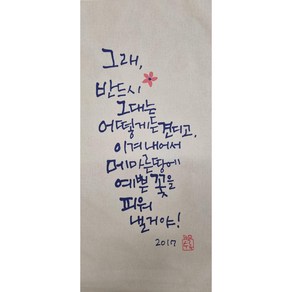 그래,
반드시
그대는
어떻게든 견디고,
이겨 내어서
메마른 땅에
예쁜 꽃을
피워
낼거야!
2017